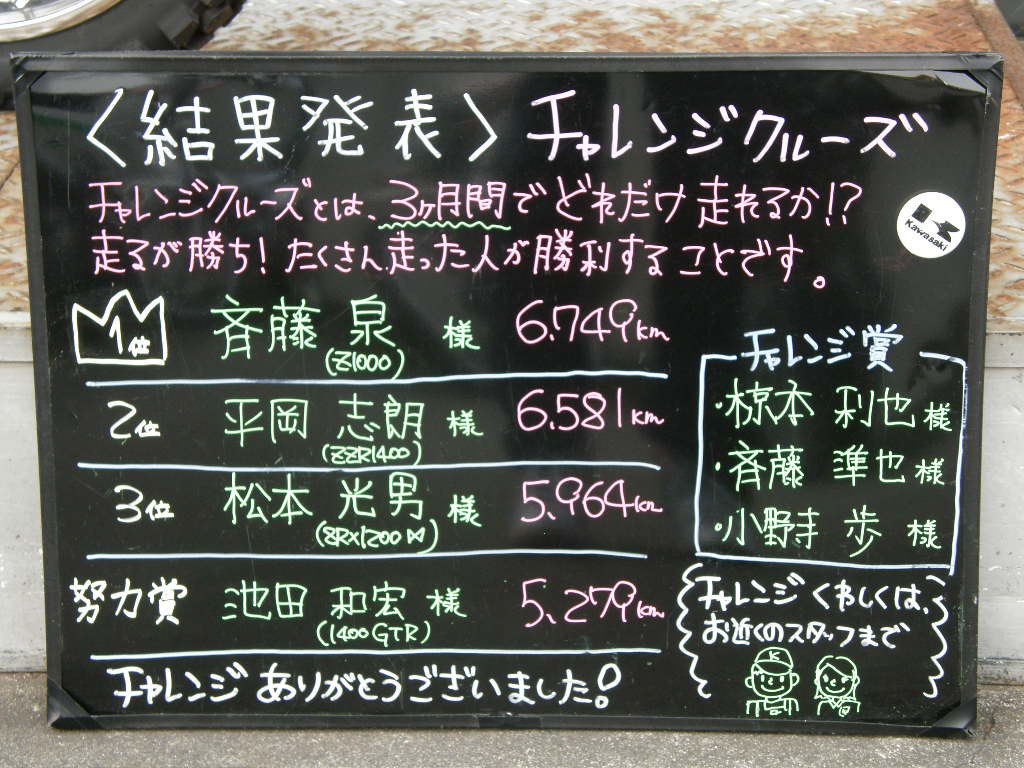 〈結果発表〉チャレンジクルーズ
チャレンジクルーズとは、3ヶ月間でどれだけ走れるか!?
走るが勝ち!たくさん走った人が勝利することです。
Kawasaki
1位 斉藤 泉 様 6.749km
(Z1000)
2位 平岡 志朗 様 6.581km
(ZZR1400)
3位 松本 光男 様 5.964km
(ZRX1200 )
努力賞 池田 和宏 様 5.279km
(1400GTR)
チャレンジありがとうございました!
チャレンジ賞
・椋本 利也 様
・斉藤 準也 様
・小野寺 歩 様
チャレンジくわしくは、
お近くのスタッフまで
K